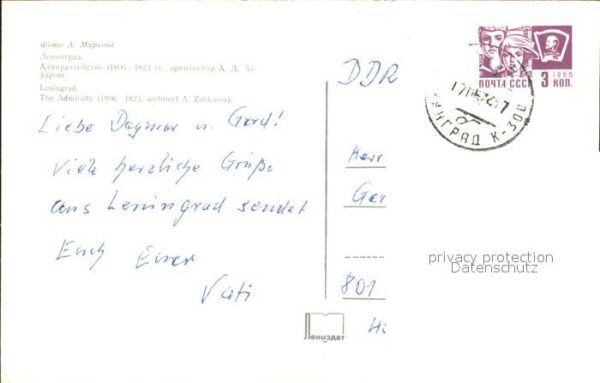 Фото А. Маркова
Ленинград.
Адмиралтейство (1806—1823 гг., архитектор А. Д. За-
харов).
Leningrad.
The Admiralty (1806—1823, architect A. Zakharov).
Liebe Dagmar u. Gerd!
Viele herzliche Grüße
aus Leningrad sendet
Euch Euer
Vati
DDR
Herr
Ger
801
ПОЧТА СССР
3 КОП.
1966
НИНГРАД К-300
privacy protection
Datenschutz
Лениздат